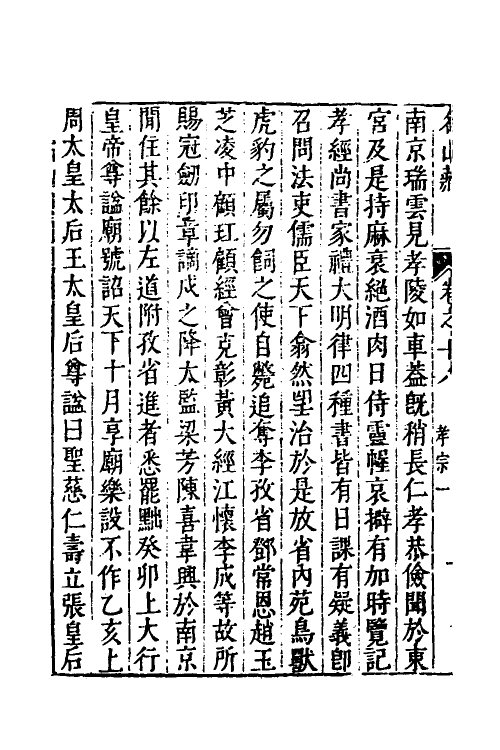 名山藏 卷之十八 孝宗一
南京瑞雲見孝陵如車葢旣稍長仁孝恭儉聞於東
宮及是持麻衰絕酒肉日侍靈幄哀擗有加時覽記
孝經尚書家禮大明律四種書皆有日課有疑義卽
召問法吏儒臣天下翕然朢治於是放省內苑鳥獸
虎豹之屬勿飼之使自斃追奪李孜省鄧常恩趙玉
芝凌中顧玒顧經曾克彰黃大經江懷李成等故所
賜冠劒印章謫戍之降太監梁芳陳喜韋興於南京
閒住其餘以左道附孜省進者悉罷黜癸卯上大行
皇帝尊謚廟號詔天下十月享廟樂設不作乙亥上
周太皇太后王太皇后尊謚曰聖慈仁壽立張皇后